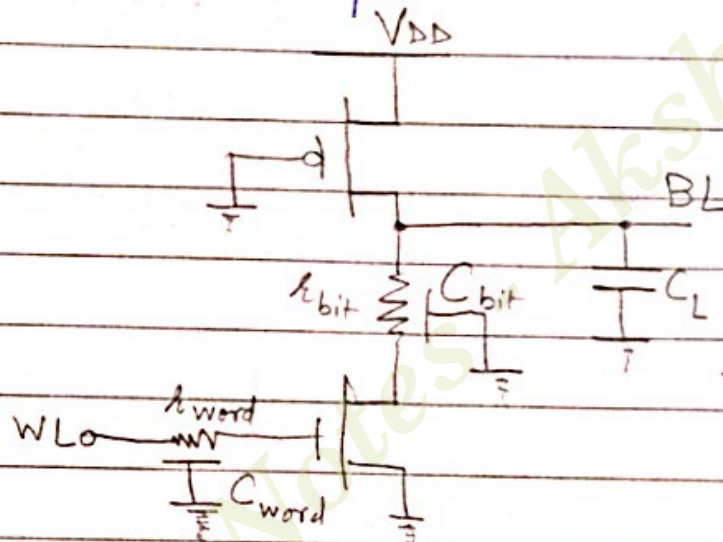 VDD
BL
rbit
Cbit
CL
rword
WL
Cword
Notes - Aksh